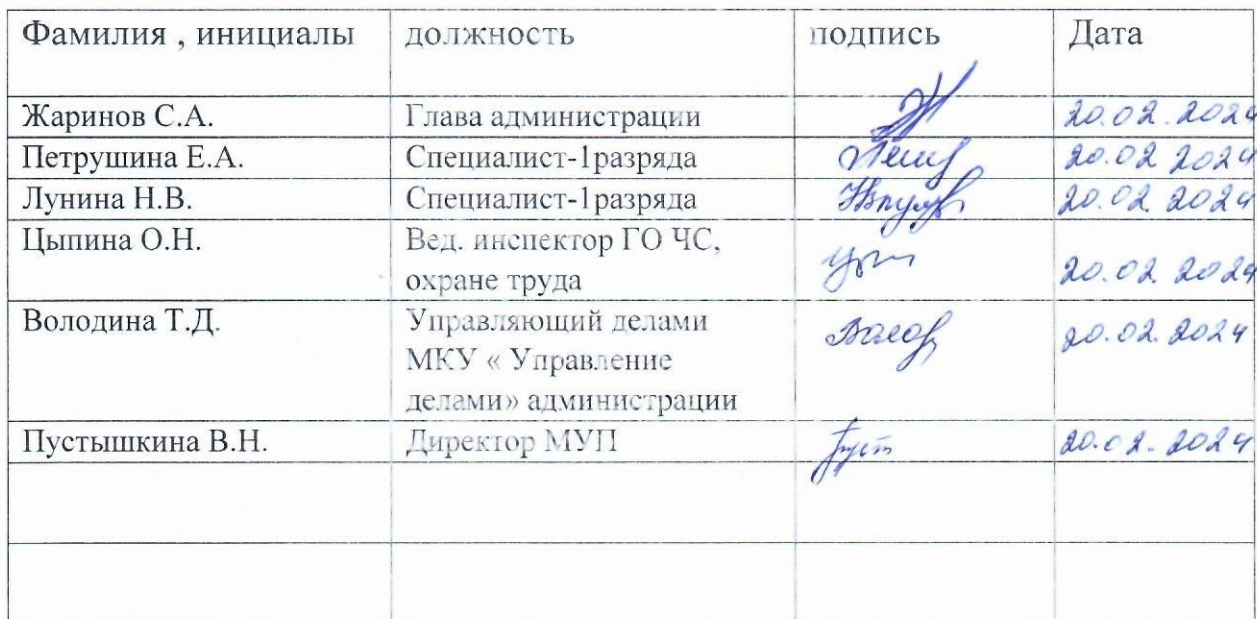 Фамилия , инициалы должность подпись Дата
Жаринов С.А. Глава администрации 20.02.2024
Петрушина Е.А. Специалист-1разряда 20.02 2024
Лунина Н.В. Специалист-1разряда 20.02.2024
Цыпина О.Н. Вед. инспектор ГО ЧС,
охране труда 20.02.2024
Володина Т.Д. Управляющий делами 20.02.2024
МКУ « Управление
делами» администрации
Пустышкина В.Н. Директор МУП 20.02.2024